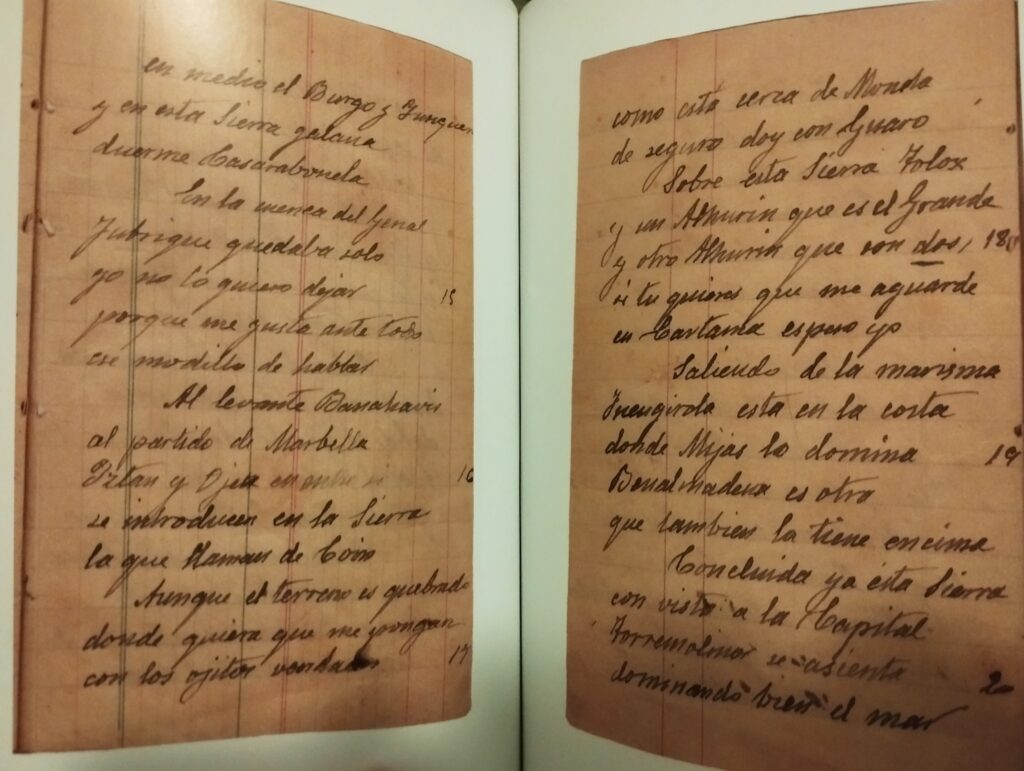 en medio el Burgo y Yunquer
y en esta Sierra galana
duerme Casarabonela
En la cuenca del Genal
Jubrique quedaba solo
yo no lo quiero dejar 15
porque me gusta ante todo
ese modillo de hablar
Al levante Banahavis
al partido de Marbella
Iztan y Ojen en entre si 16
se introducen en la Sierra
la que llaman de Coin
Aunque el terreno es quebrado
donde quiera que me pongan
con los ojitos vendados 17
como esta cerca de Monda
de seguro doy con Guaro
Sobre esta Sierra Tolox
y un Alhurin que es el Grande
y otro Alhurin que son dos, 18
si tu quieres que me aguarde
en Cartama espero yo
Saliendo de la marisma
Fuengirola esta en la costa
donde Mijas lo domina 19
Benalmadena es otra
que tambien la tiene encima
Concluida ya esta Sierra
con vista a la Capital
Torremolinos se asienta
dominando bien el mar 20